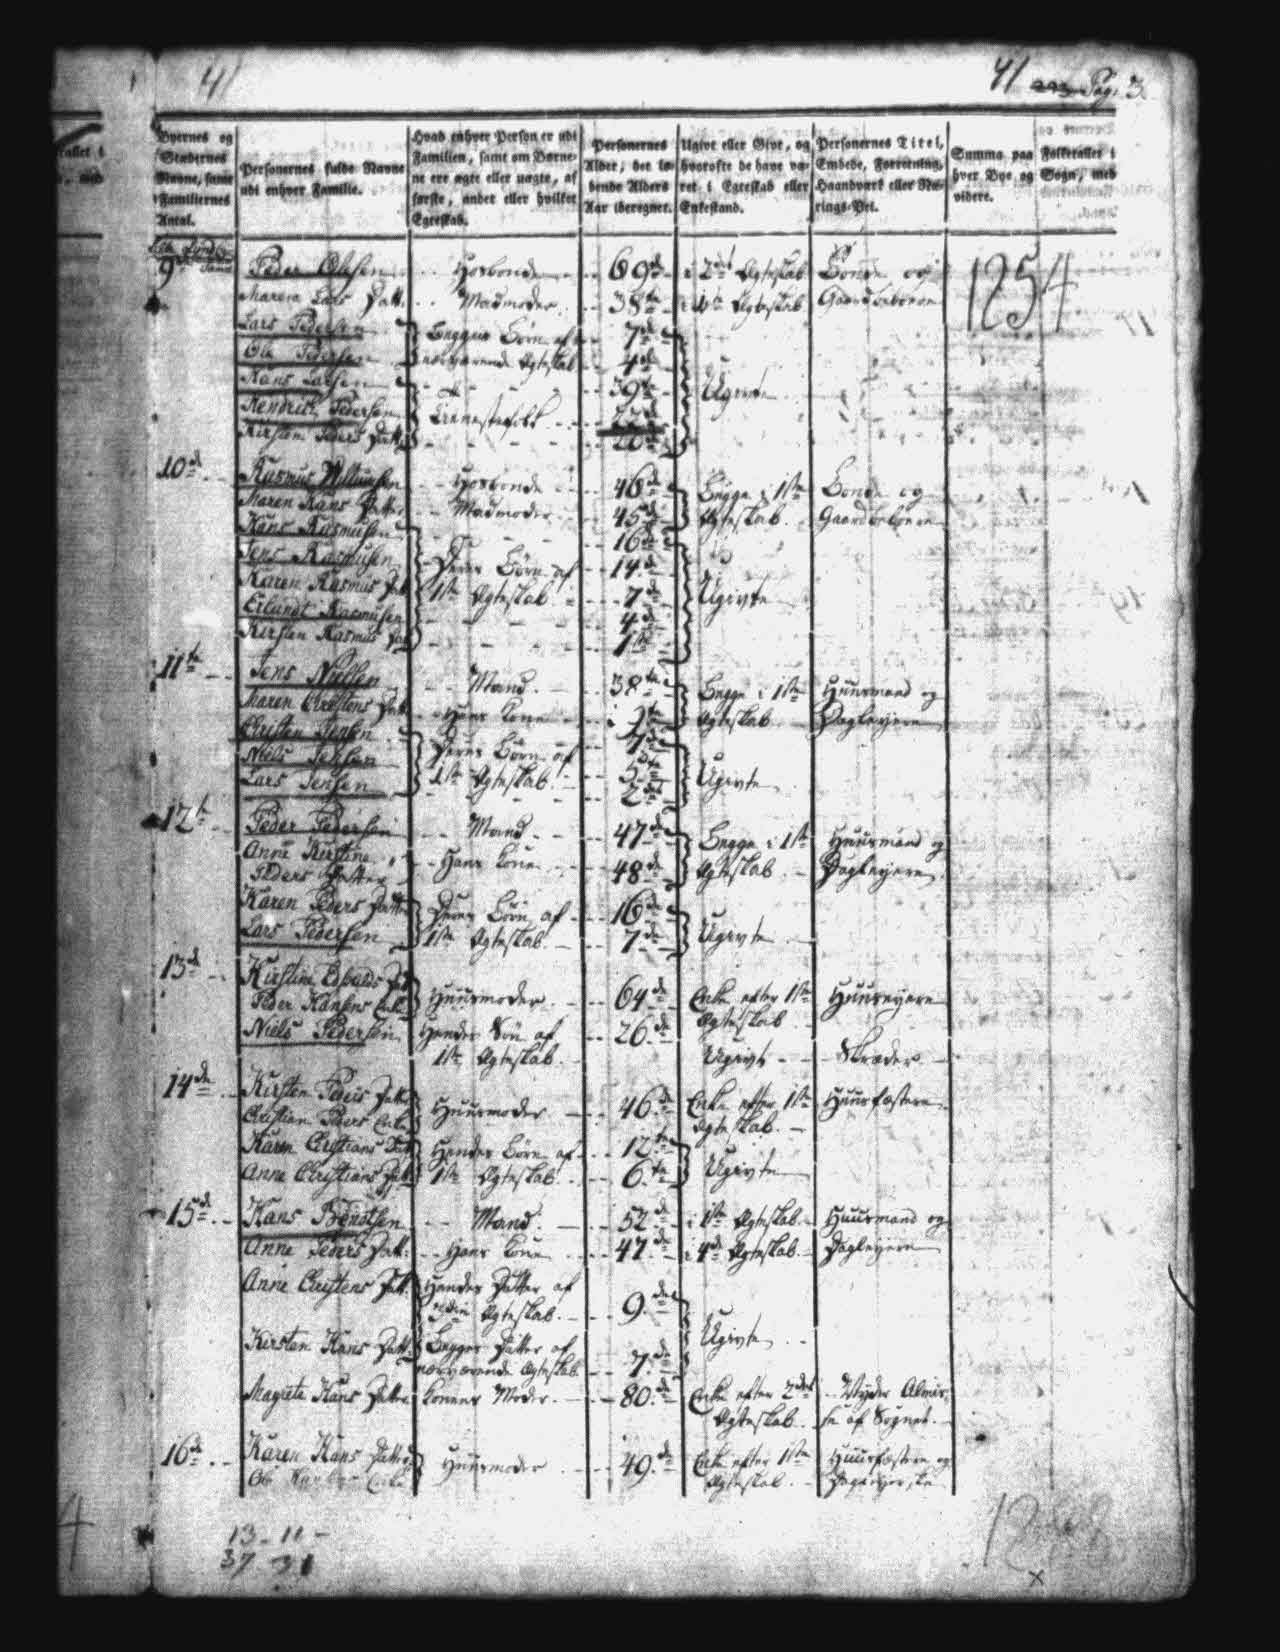 41
41 Pag. 3.
Byernes og Stædernes Navne, samt Familiernes Antal.
Personernes fulde Navne udi enhver Familie.
Hvad enhver Person er udi Familien, samt om Børnene ere ægte eller uægte, af første, andet eller hvilket Egteskab.
Personernes Alder, det løbende Alders Aar iberegnet.
Ugivt eller Givt, og hvorofte de have været i Egteskab eller Enkestand.
Personernes Titel, Embede, Forretning, Haandværk eller Nærings-Vei.
Summa paa hver Bye og videre.
Folketallet i Sogn, med
9de Peder Olesen Hosbonde 69de i 2det Ægteskab Bonde og
Maren Lars Datt. Madmoder 38te i 1ste Ægteskab Gaardbeboere
1254
Lars Pedersen Begges Børn af 7de
Ole Pedersen nærværende Ægteskab 4de
Hans Larsen 39te Ugivte
Hendrich Pedersen Tienestefolk
Kirsten Peders Datt. 20de
10de Rasmus Hosbonde 46de Begge i 1ste Bonde og
Maren Hans Datter Madmoder 45de Ægteskab Gaardbeboere
Hans Rasmusen 16de
Jens Rasmusen Deres Børn af 14de
Karen Rasmus Dat 1ste Ægteskab 7de Ugivte
Erlandt Rasmusen 4de
Kirsten Rasmus Dat 1ste
11te Jens Nielsen Mand 38te Begge i 1ste Huusmand og
Maren Christens Dat Hans Kone Ægteskab Dagleyere
Christen Jensen Deres Børn af 7de
Niels Jensen 1ste Ægteskab 5te Ugivte
Lars Jensen 2det
12te Peder Pedersen Mand 47de Begge i 1ste Huusmand og
Anne Kirstine Peders Datter Hans Kone 48de Ægteskab Dagleyere
Karen Peders Datter Deres Børn af 16de
Lars Pedersen 1ste Ægteskab 7de Ugivte
13de Kirstine Dat
Peder Hansens Enke Huusmoder 64de Enke efter 1ste Ægteskab Huusejere
Niels Pedersen Hendes Søn af 1ste Ægteskab 26de Ugivt Skræder
14de Kirsten Peders Datter
Christian Peders Enke Huusmoder 46de Enke efter 1ste Ægteskab Huusfæstere
Karen Christians Dat Hendes Børn af 12te
Anne Christians Dat 1ste Ægteskab 6te Ugivte
15de Hans Bendtsen Mand 52de i 1ste Ægteskab Huusmand og
Anne Peders Datt. Hans Kone 47de i 4de Ægteskab Dagleyere
Anne Christens Datt. Hendes Datter af Ægteskab 9de
Kirsten Hans Datt. Begges Datter af nærværende Ægteskab 7de Ugivte
Magrete Hans Datter Konens Moder 80de Enke efter 2det Ægteskab Nyder Almisse af Sognet
16de Karen Hans Datter
Enke Huusmoder 49de Enke efter 1ste Ægteskab Huusfæstere og
13 - 11 -
37. 31